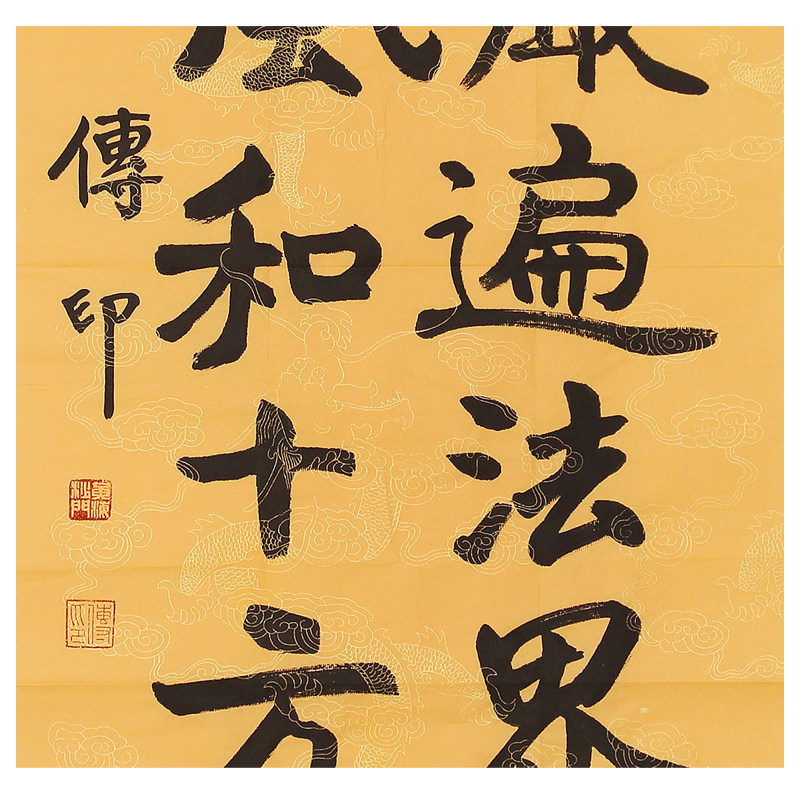 遍法界
和十方
傳印